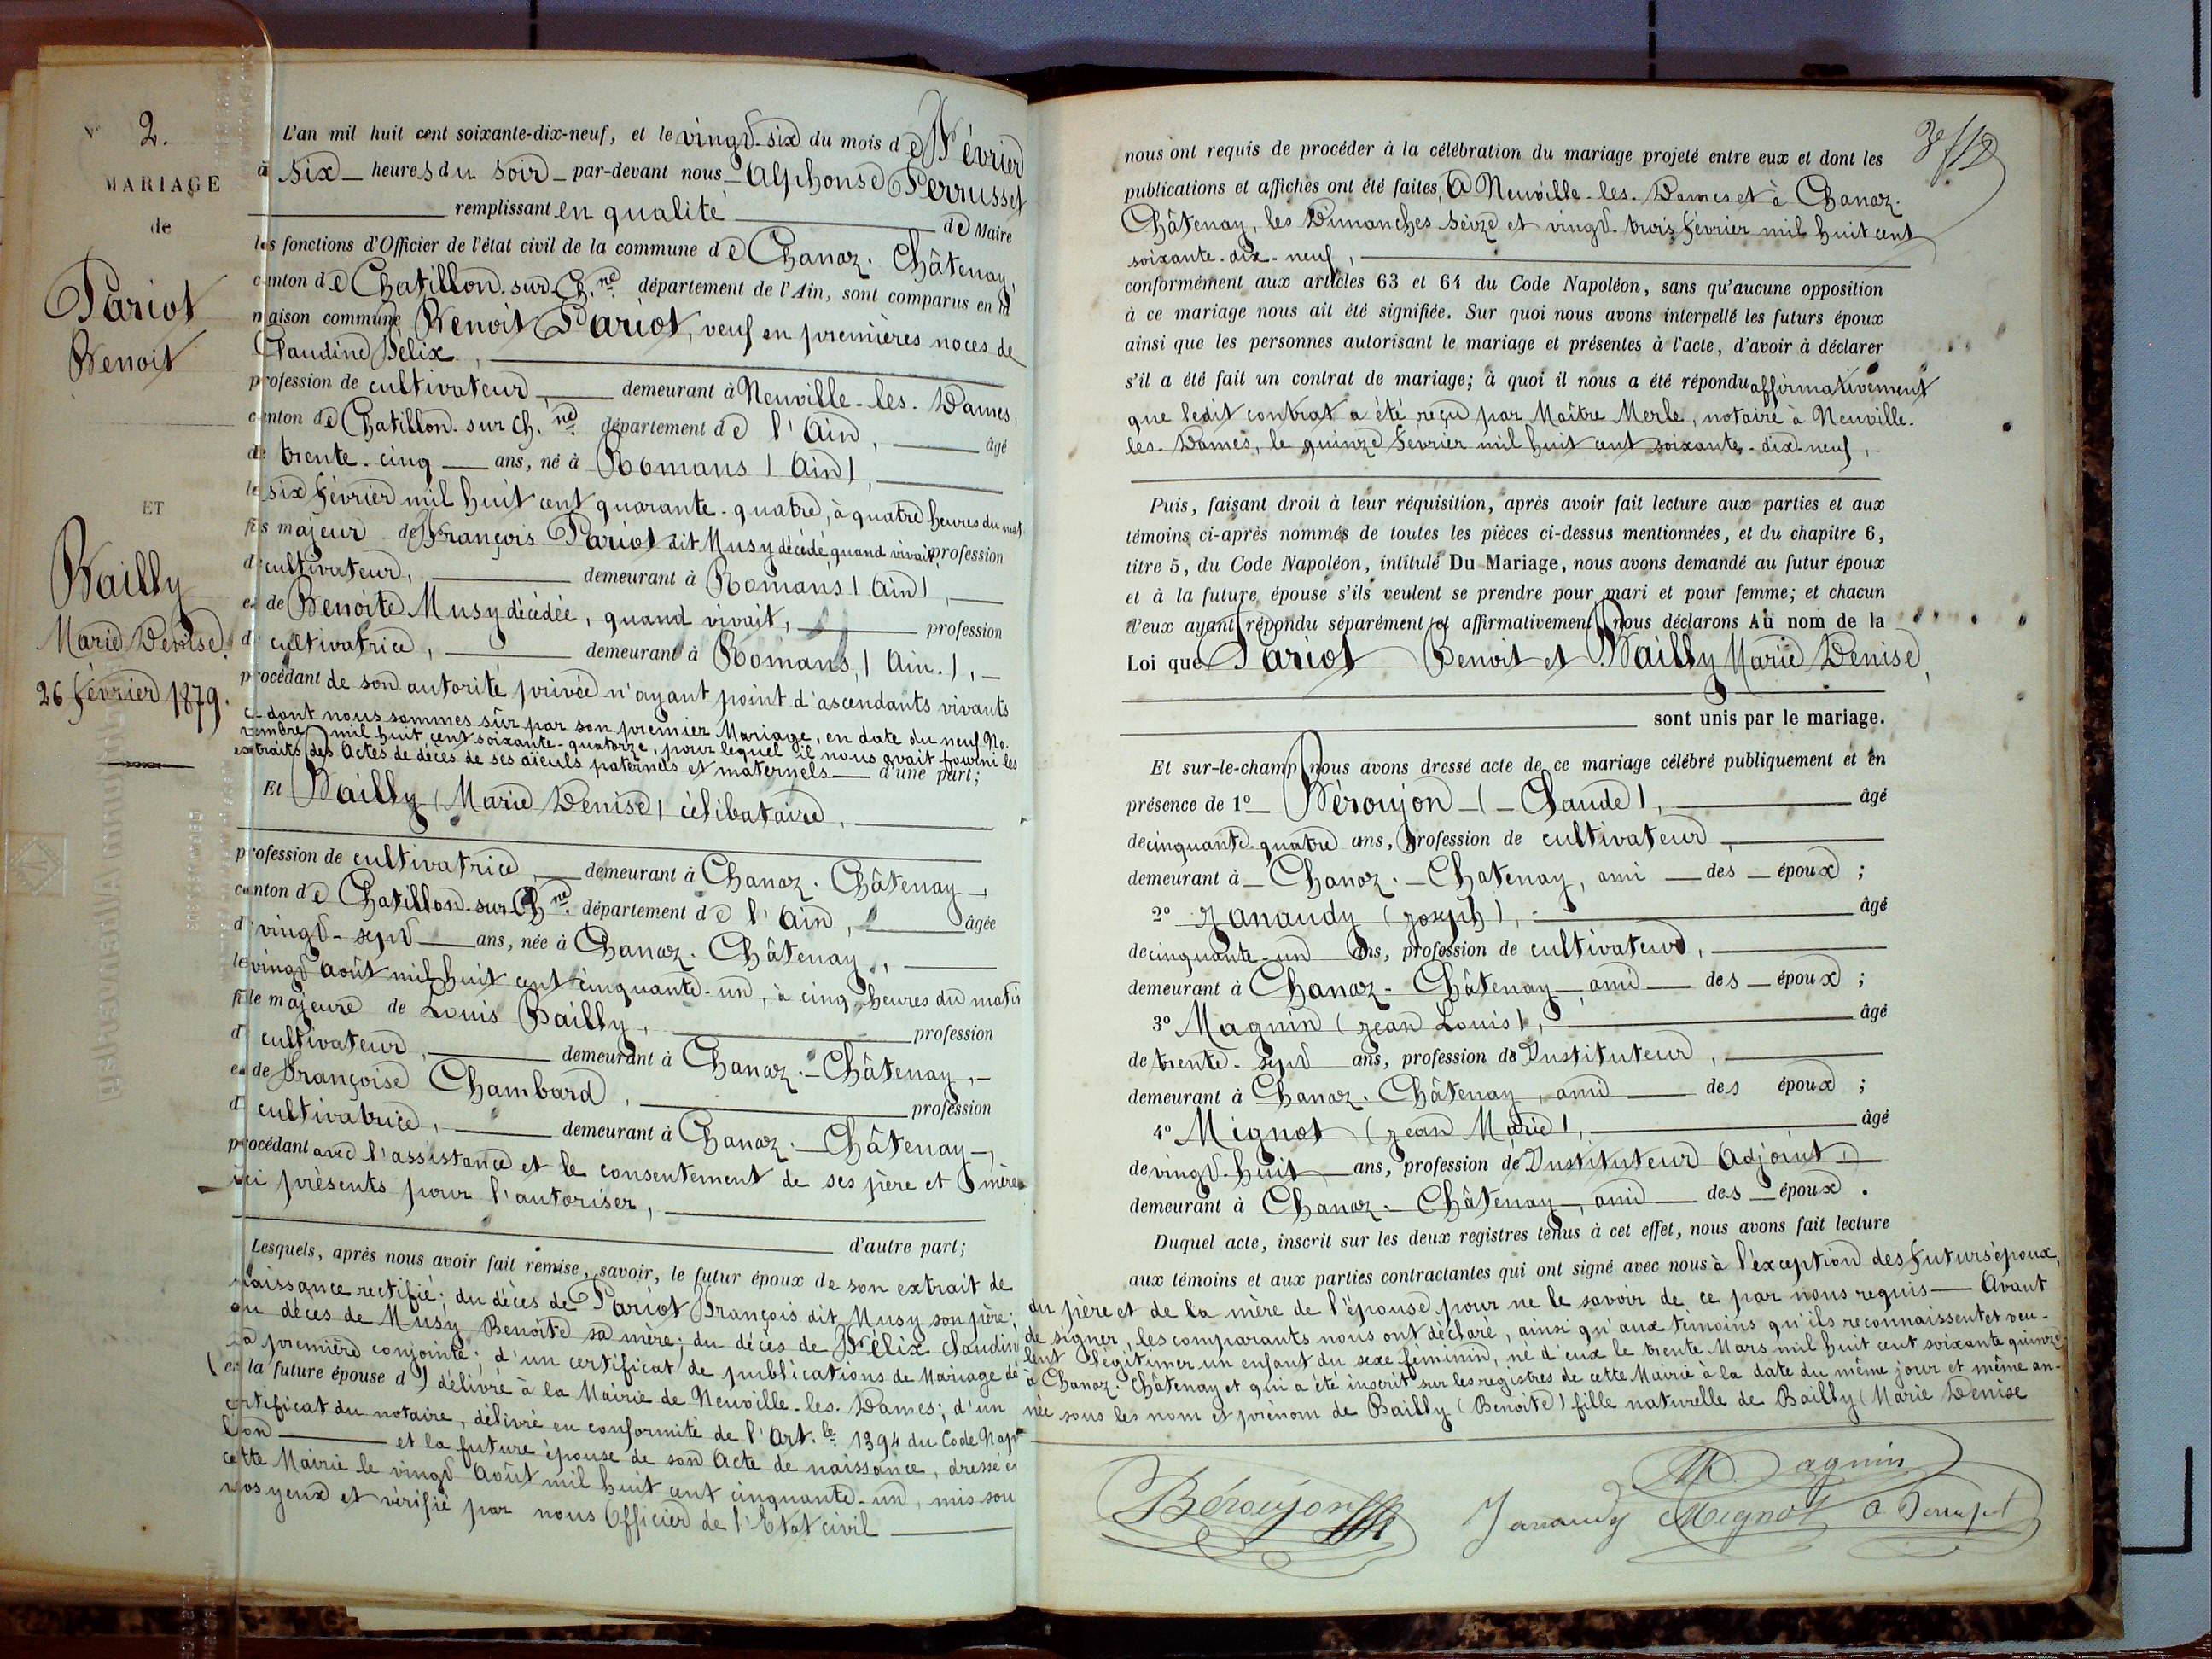 N° 2.
MARIAGE
de
Pariot
Benoit
ET
Bailly
Marie Denise.
26 février 1879.
L'an mil huit cent soixante-dix-neuf, et le vingt-six du mois de Février
à six heures du soir par-devant nous Alphonse Perrusset
remplissant en qualité de Maire
les fonctions d'Officier de l'état civil de la commune de Chanoz-Châtenay,
canton de Chatillon-sur-Ch.ne département de l'Ain, sont comparus en la
maison commune Benoit Pariot, veuf en premières noces de
Claudine Félix,
profession de cultivateur, demeurant à Neuville-les-Dames,
canton de Chatillon-sur-Ch.ne département de l'Ain, âgé
de trente-cinq ans, né à Romans (Ain),
le six février mil huit cent quarante-quatre, à quatre heures du mat.
fils majeur de François Pariot dit Musy décédé, quand vivait, profession
de cultivateur, demeurant à Romans (Ain),
et de Benoite Musy décédée, quand vivait, profession
de cultivatrice, demeurant à Romans, (Ain.),
procédant de son autorité privée n'ayant point d'ascendants vivants
ce dont nous sommes sûr par son premier Mariage, en date du neuf No-
vembre mil huit cent soixante-quatorze, pour lequel il nous avait fourni les
extraits des Actes de décès de ses aïeuls paternels et maternels d'une part;
Et Bailly (Marie Denise) célibataire,
profession de cultivatrice, demeurant à Chanoz-Châtenay,
canton de Chatillon-sur-Ch.ne département de l'Ain, âgée
de vingt-sept ans, née à Chanoz-Châtenay,
le vingt Août mil huit cent cinquante-un, à cinq heures du matin
fille majeure de Louis Bailly, profession
de cultivateur, demeurant à Chanoz-Châtenay,
et de Françoise Chambard, profession
de cultivatrice, demeurant à Chanoz-Châtenay,
procédant avec l'assistance et le consentement de ses père et mère
ici présents pour l'autoriser,
d'autre part;
Lesquels, après nous avoir fait remise, savoir, le futur époux de son extrait de
naissance rectifié; du décès de Pariot François dit Musy son père;
du décès de Musy Benoite sa mère; du décès de Félix Claudine
sa première conjointe; d'un certificat de publications de Mariage dé-
(et la future épouse d') délivré à la Mairie de Neuville-les-Dames; d'un
certificat du notaire, délivré en conformité de l'Art.le 1394 du Code Napo
léon et la future épouse de son Acte de naissance, dressé en
cette Mairie le vingt Août mil huit cent cinquante-un, mis sous
nos yeux et vérifié par nous Officier de l'Etat civil
nous ont requis de procéder à la célébration du mariage projeté entre eux et dont les
publications et affiches ont été faites, A Neuville-les-Dames et à Chanoz-
Châtenay, les Dimanches seize et vingt-trois février mil huit cent
soixante-dix-neuf,
conformément aux articles 63 et 64 du Code Napoléon, sans qu'aucune opposition
à ce mariage nous ait été signifiée. Sur quoi nous avons interpellé les futurs époux
ainsi que les personnes autorisant le mariage et présentes à l'acte, d'avoir à déclarer
s'il a été fait un contrat de mariage; à quoi il nous a été répondu affirmativement
que ledit contrat a été reçu par Maître Merle, notaire à Neuville-
les-Dames, le quinze Février mil huit cent soixante-dix-neuf,
Puis, faisant droit à leur réquisition, après avoir fait lecture aux parties et aux
témoins ci-après nommés de toutes les pièces ci-dessus mentionnées, et du chapitre 6,
titre 5, du Code Napoléon, intitulé Du Mariage, nous avons demandé au futur époux
et à la future épouse s'ils veulent se prendre pour mari et pour femme; et chacun
d'eux ayant répondu séparément et affirmativement nous déclarons Au nom de la
Loi que Pariot Benoit et Bailly Marie Denise,
sont unis par le mariage.
Et sur-le-champ nous avons dressé acte de ce mariage célébré publiquement et en
présence de 1° Béroujon (Claude), âgé
de cinquante-quatre ans, profession de cultivateur,
demeurant à Chanoz-Chatenay, ami des époux;
2° Janaudy (Joseph), âgé
de cinquante-un ans, profession de cultivateur,
demeurant à Chanoz-Châtenay, ami des époux;
3° Magnin (Jean Louis), âgé
de trente-sept ans, profession de Instituteur,
demeurant à Chanoz-Châtenay, ami des époux;
4° Mignot (Jean Marie), âgé
de vingt-huit ans, profession de Instituteur Adjoint,
demeurant à Chanoz-Châtenay, ami des époux.
Duquel acte, inscrit sur les deux registres tenus à cet effet, nous avons fait lecture
aux témoins et aux parties contractantes qui ont signé avec nous à l'exception des futurs époux,
du père et de la mère de l'épouse pour ne le savoir de ce par nous requis Avant
de signer, les comparants nous ont déclaré, ainsi qu'aux témoins qu'ils reconnaissent et veu-
lent légitimer un enfant du sexe féminin, né d'eux le trente Mars mil huit cent soixante quinze
à Chanoz-Châtenay et qui a été inscrit sur les registres de cette Mairie à la date du même jour et même an-
née sous les nom et prénom de Bailly (Benoite) fille naturelle de Bailly (Marie Denise
Béroujon
Janaudy
Magnin
Mignot
A Perrusset